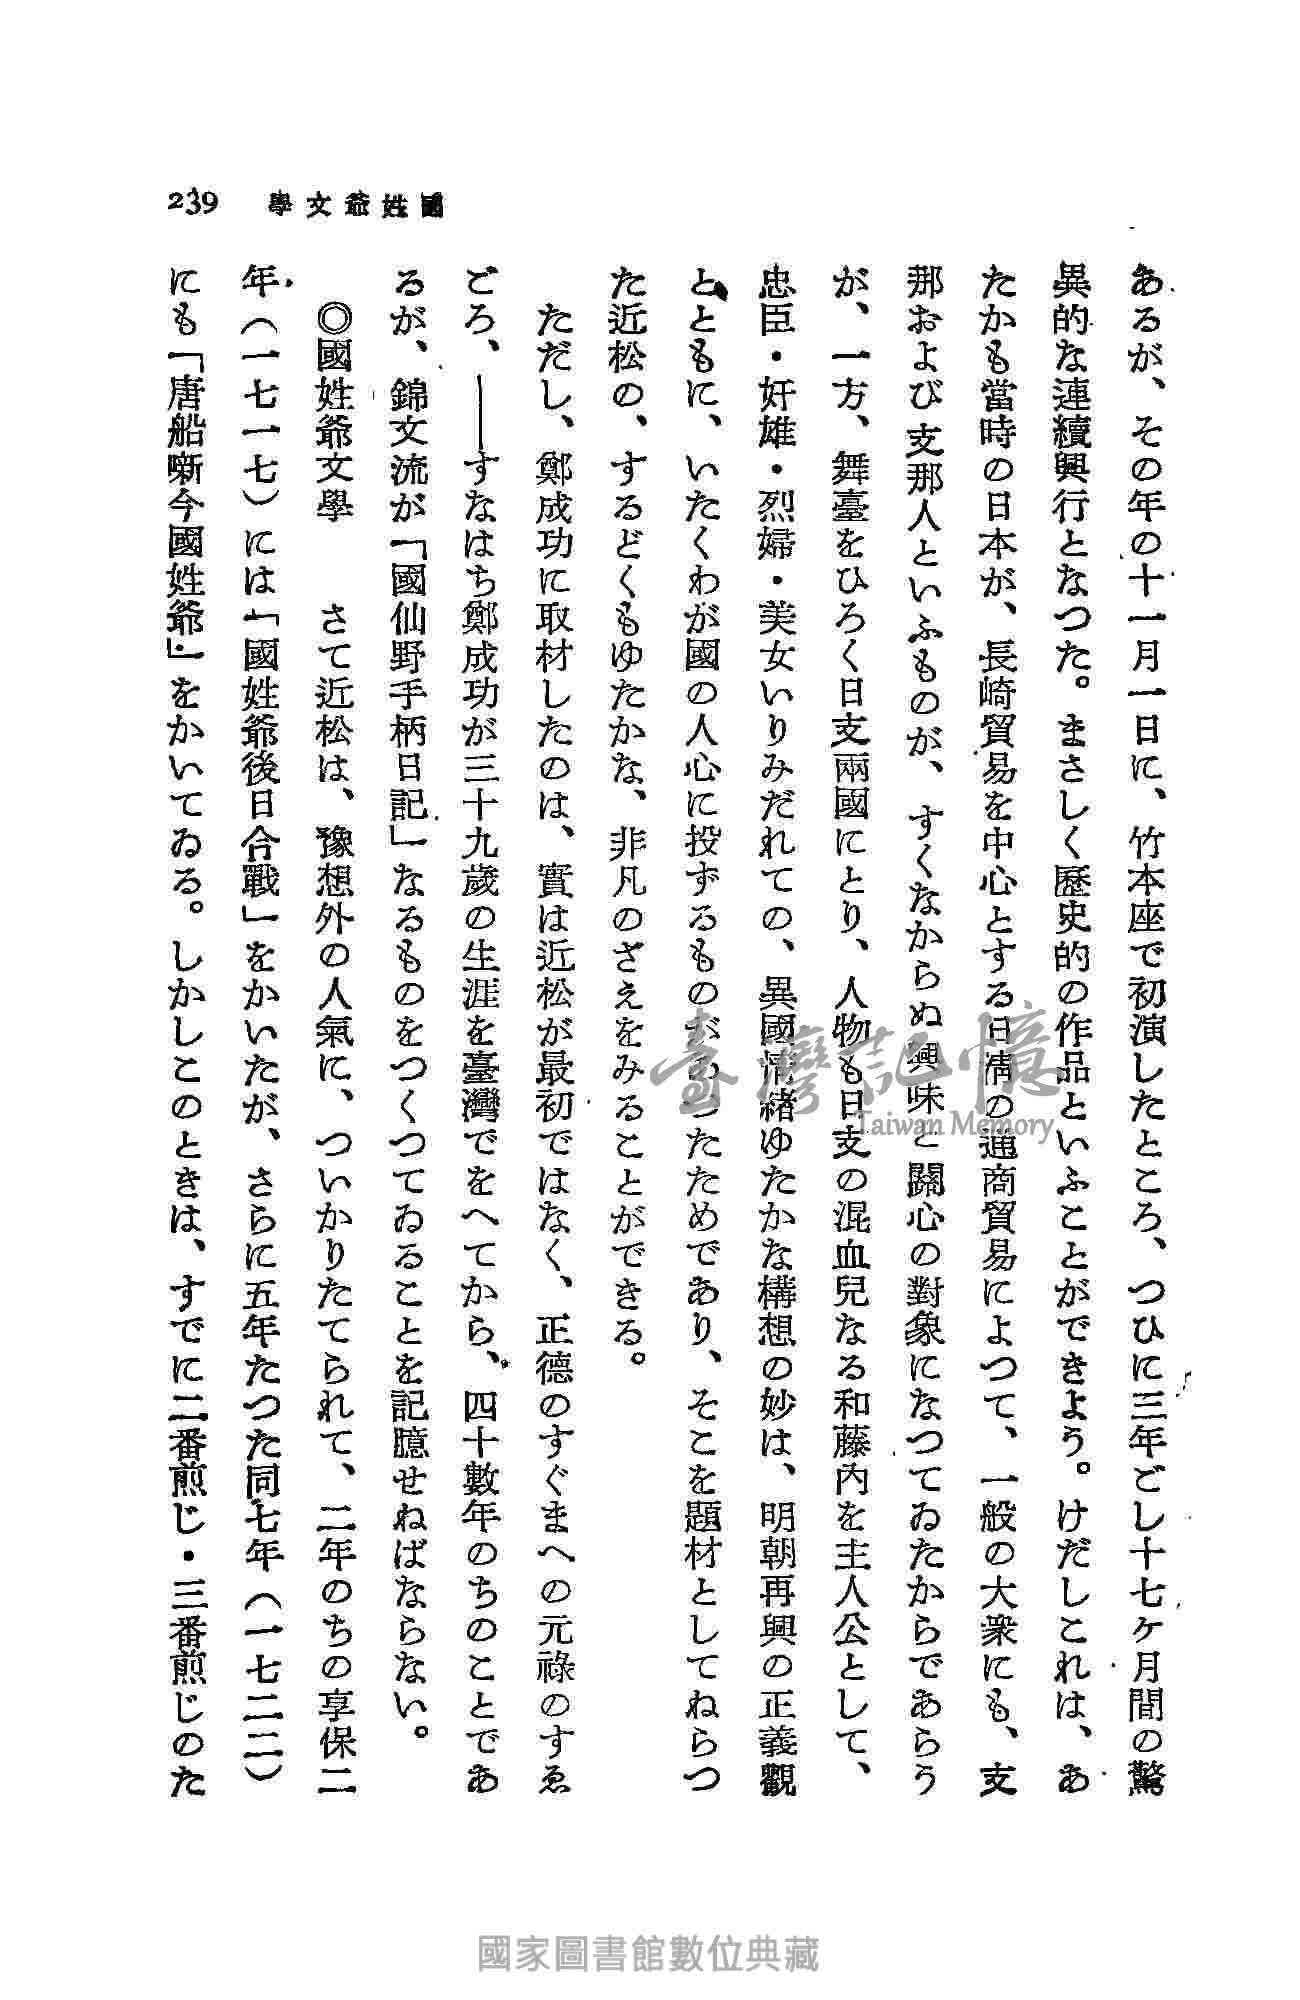 239 國姓爺文學
あるが、その年の十一月一日に、竹本座で初演したところ、つひに三年ごし十七ヶ月間の驚
異的な連續興行となつた。まさしく歷史的の作品といふことができよう。けだしこれは、あ
たかも當時の日本が、長崎貿易を中心とする日淸の通商貿易によつて、一般の大衆にも、支
那および支那人といふものが、すくなからぬ興味と關心の對象になつてゐたからであらう
が、一方、舞臺をひろく日支兩國にとり、人物も日支の混血兒なる和藤內を主人公として、
忠臣・奸雄・烈婦・美女いりみだれての、異國情緖ゆたかな構想の妙は、明朝再興の正義觀
とともに、いたくわが國の人心に投ずるものがあつたためであり、そこを題材としてねらつ
た近松の、するどくもゆたかな、非凡のざえをみることができる。
ただし、鄭成功に取材したのは、實は近松が最初ではなく、正德のすぐまへの元祿のすゑ
ごろ、――すなはち鄭成功が三十九歲の生涯を臺灣でをへてから、四十數年のちのことであ
るが、錦文流が「國仙野手柄日記」なるものをつくつてゐることを記臆せねばならない。
◎國姓爺文學 さて近松は、豫想外の人氣に、ついかりたてられて、二年のちの享保二
年（一七一七）には「國姓爺後日合戰」をかいたが、さらに五年たつた同七年（一七二二）
にも「唐船噺今國姓爺」をかいてゐる。しかしこのときは、すでに二番煎じ・三番煎じのた
臺灣記憶
Taiwan Memory
國家圖書館數位典藏